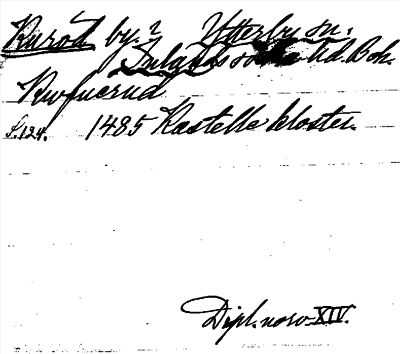 Kuröd by. i Ytterby sn.
Inlands södra hd. Boh.
Kwfuerud
S. 124. 1485 Kastelle kloster.
Dipl. norv. XIV.